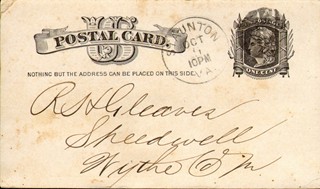 U S
POSTAL CARD.
NOTHING BUT THE ADDRESS CAN BE PLACED ON THIS SIDE.
STAUNTON
OCT
11
10PM
VA.
ONE CENT
R. H. Gleaves
Speedwell
Wythe Co